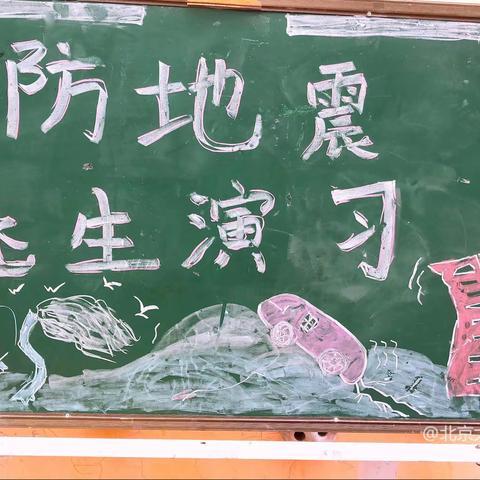 防地震
生演习
@北京